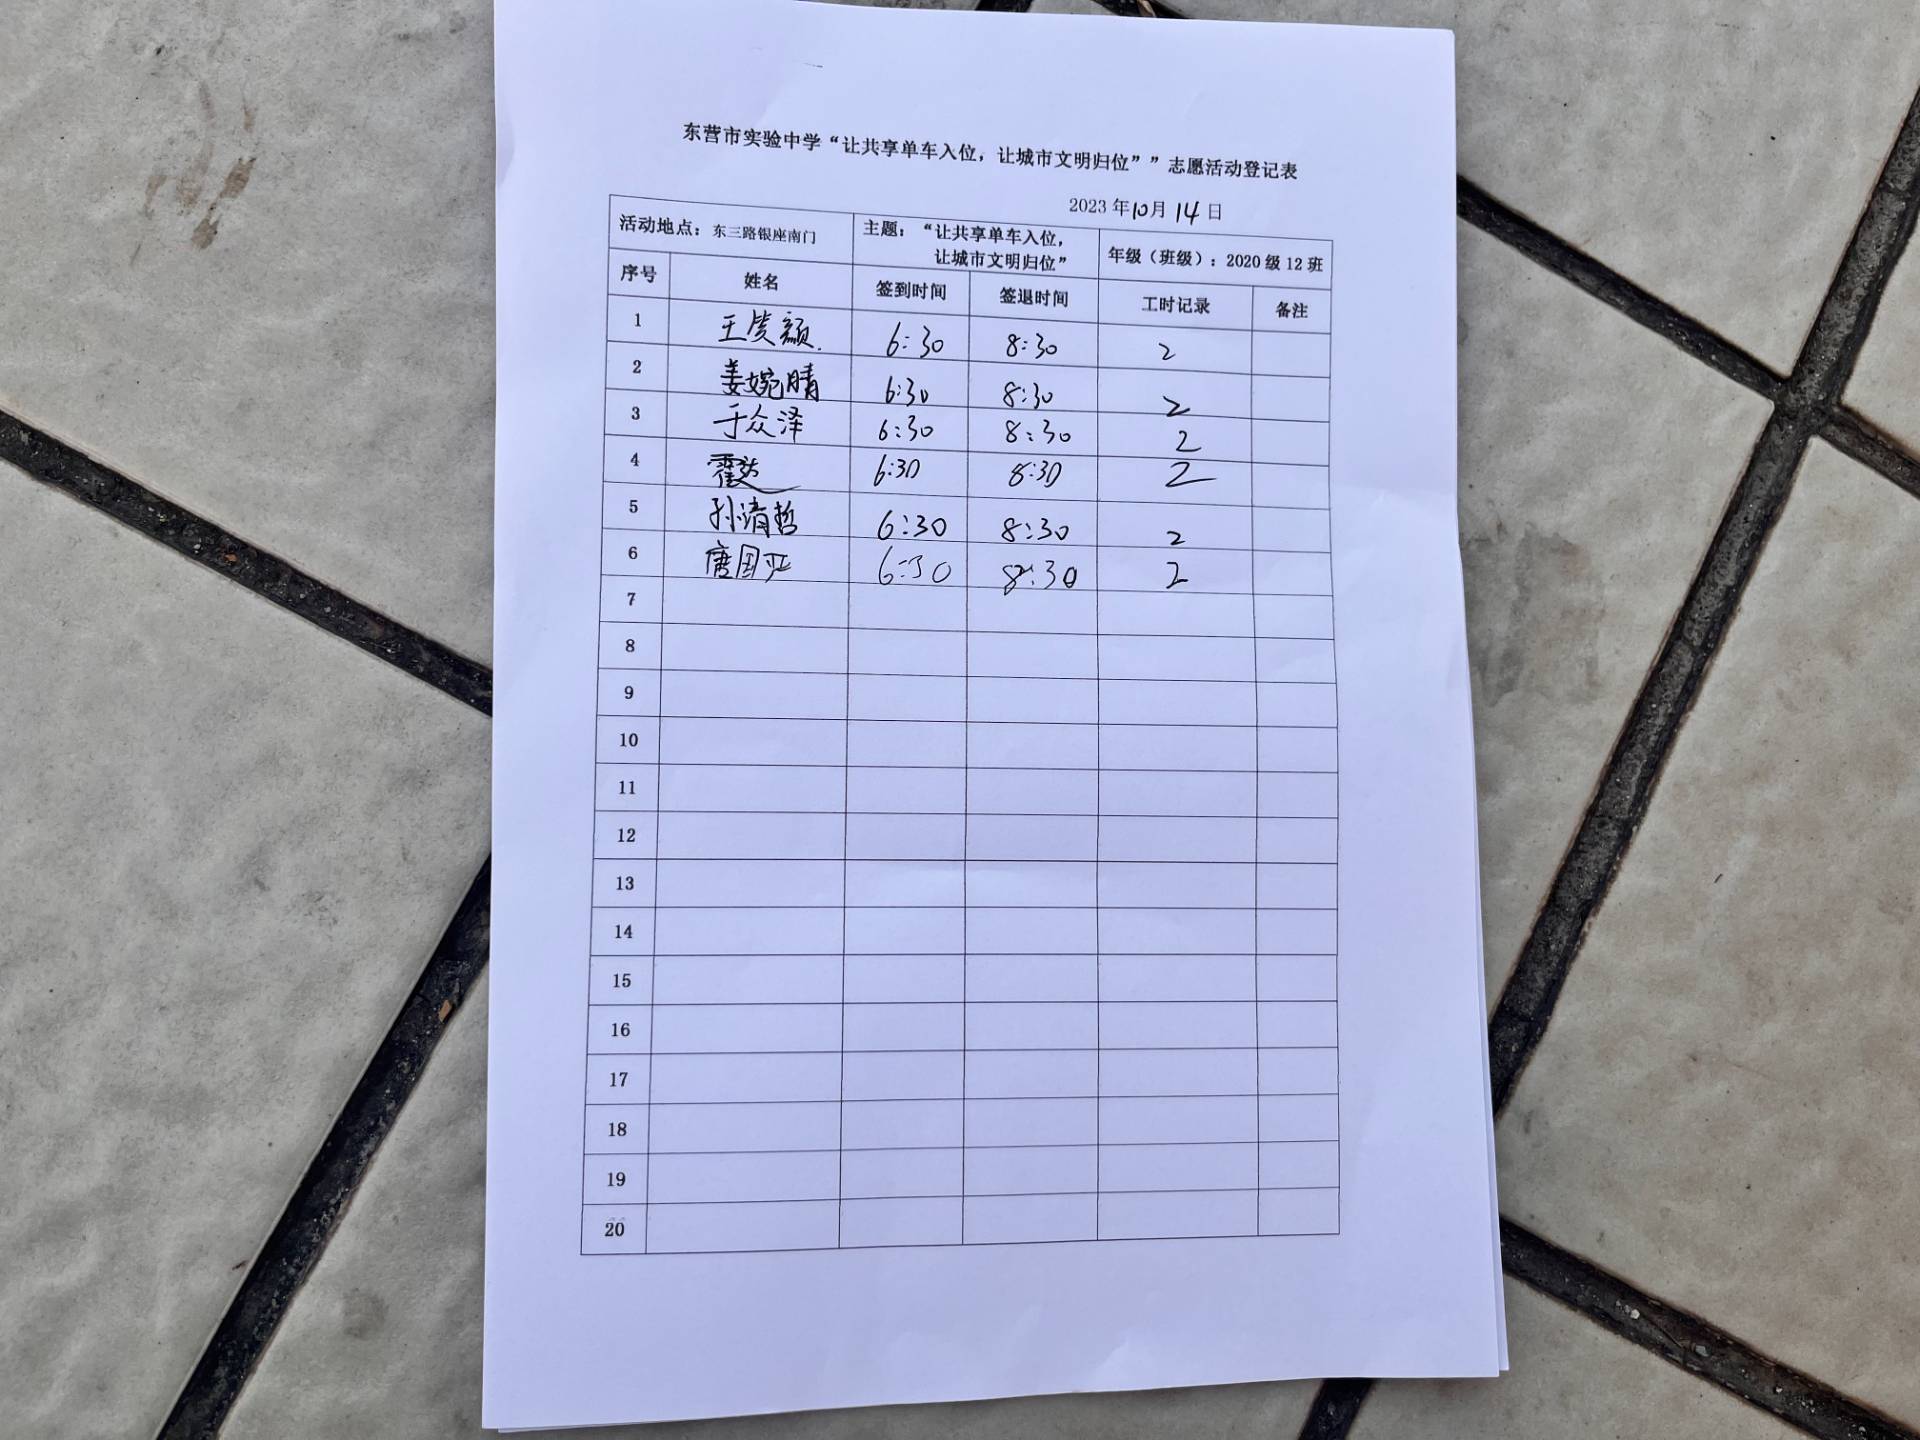 东营市实验中学“让共享单车入位，让城市文明归位””志愿活动登记表
2023 年10月 14 日
活动地点：东三路银座南门 主题：“让共享单车入位，让城市文明归位” 年级（班级）：2020 级 12 班
序号 姓名 签到时间 签退时间 工时记录 备注
1 王笑颜 6:30 8:30 2
2 姜婉晴 6:30 8:30 2
3 于众泽 6:30 8:30 2
4 霍达 6:30 8:30 2
5 孙清哲 6:30 8:30 2
6 唐国亚 6:30 8:30 2
7
8
9
10
11
12
13
14
15
16
17
18
19
20